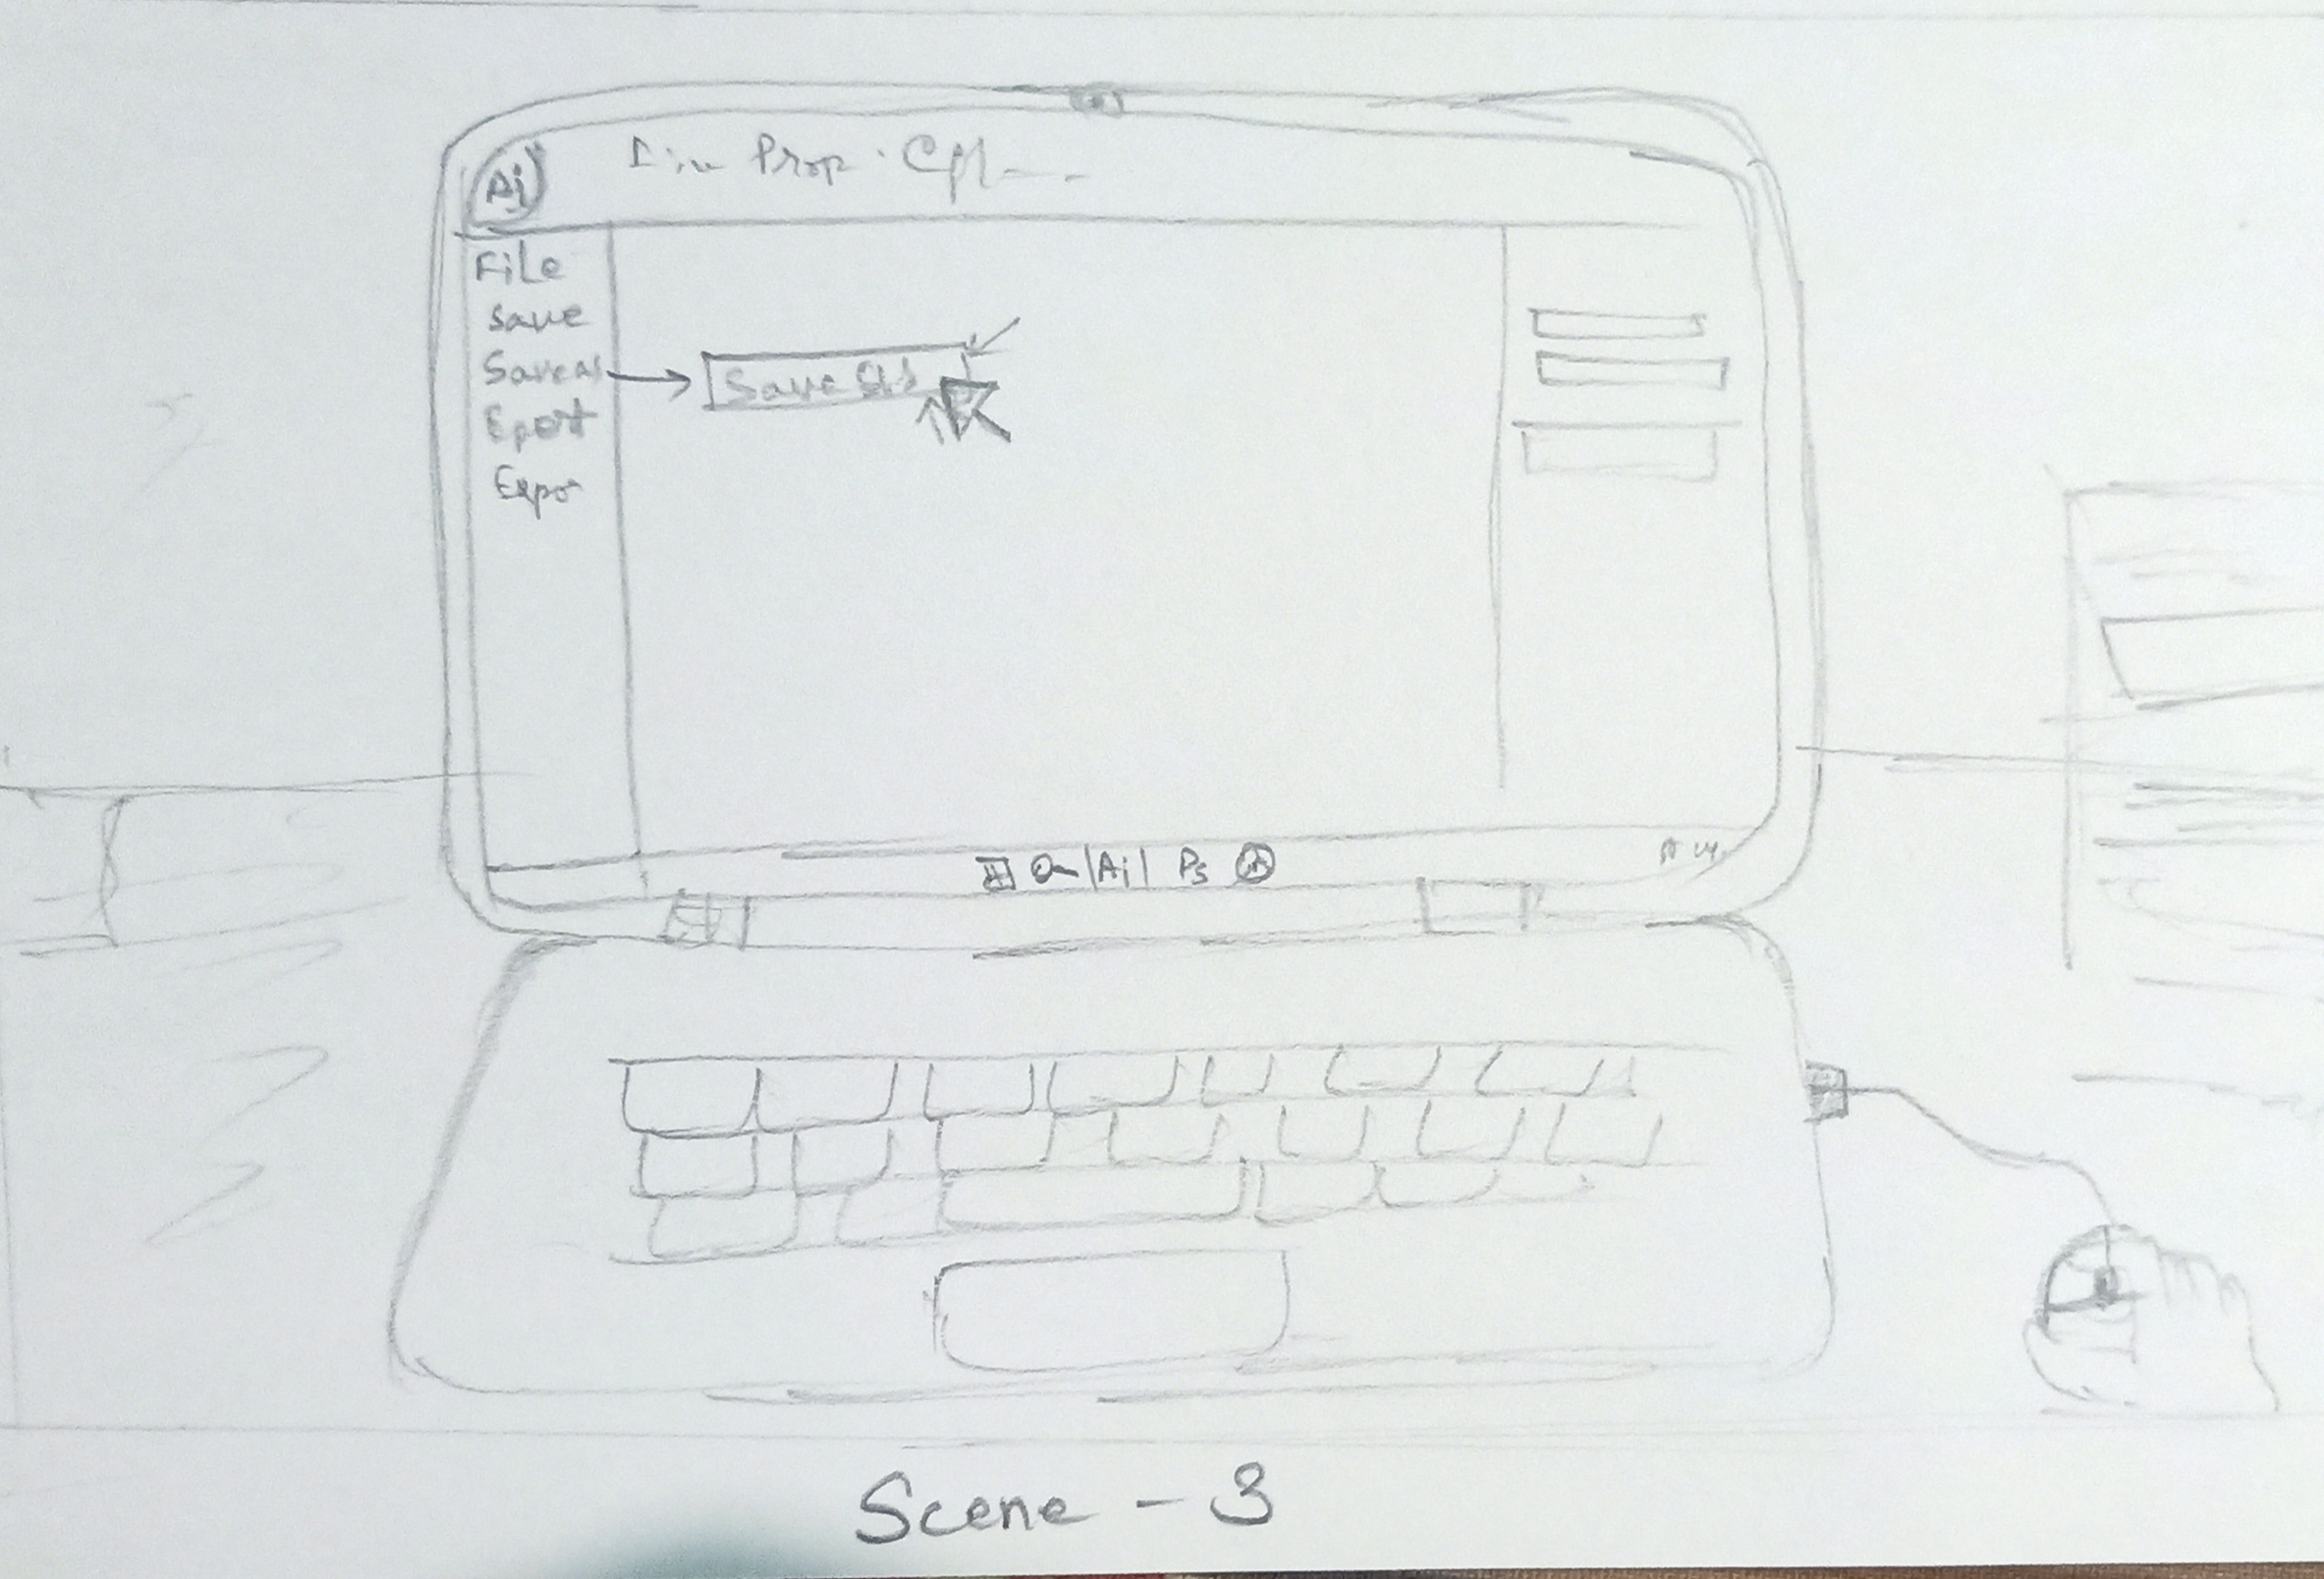 Ai
Prop.
File
Save
Saveas
Eport
Expo
Save
Ai Ps
Scene - 3